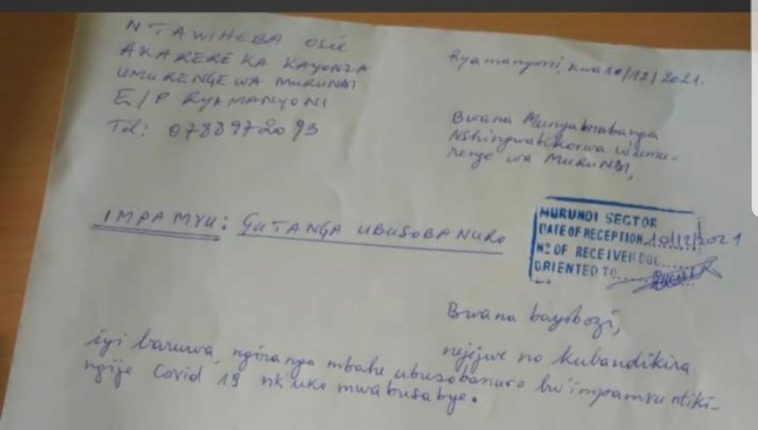 NTAWIHEBA Osée
AKARERE KA KAYONZA
UMURENGE WA MURUNDI
E/P RYAMANYONI
Tél: 0788972093
Ryamanyoni, kuwa 10/12/2021.
Bwana Munyabanabanga
Nshingwabikorwa w'umu-
renge wa MURUNDI,
IMPAMVU: GUTANGA UBUSOBANURO
MURUNDI SECTOR
DATE OF RECEPTION 10/12/2021
No OF RECEIVED DOC.......
ORIENTED TO
Bwana bayobozi,
nejejwe no kubandikira
iyi baruwa, ngirango mbahe ubusobanuro bw'impamvu ntiki-
ngije Covid 19 nk'uko mwabusabye.